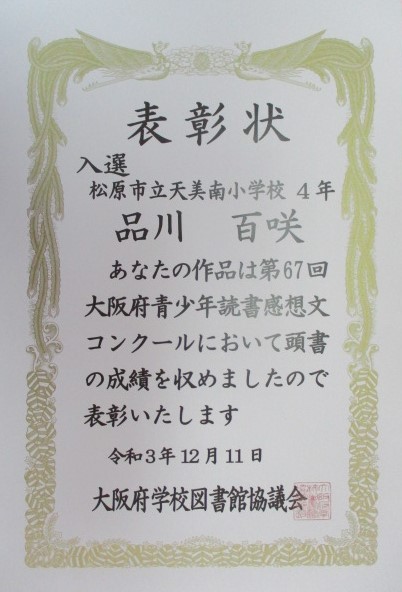 表彰状
入選
松原市立天美南小学校 4年
品川 百咲
あなたの作品は第67回
大阪府青少年読書感想文
コンクールにおいて頭書
の成績を収めましたので
表彰いたします
令和3年12月11日
大阪府学校図書館協議会